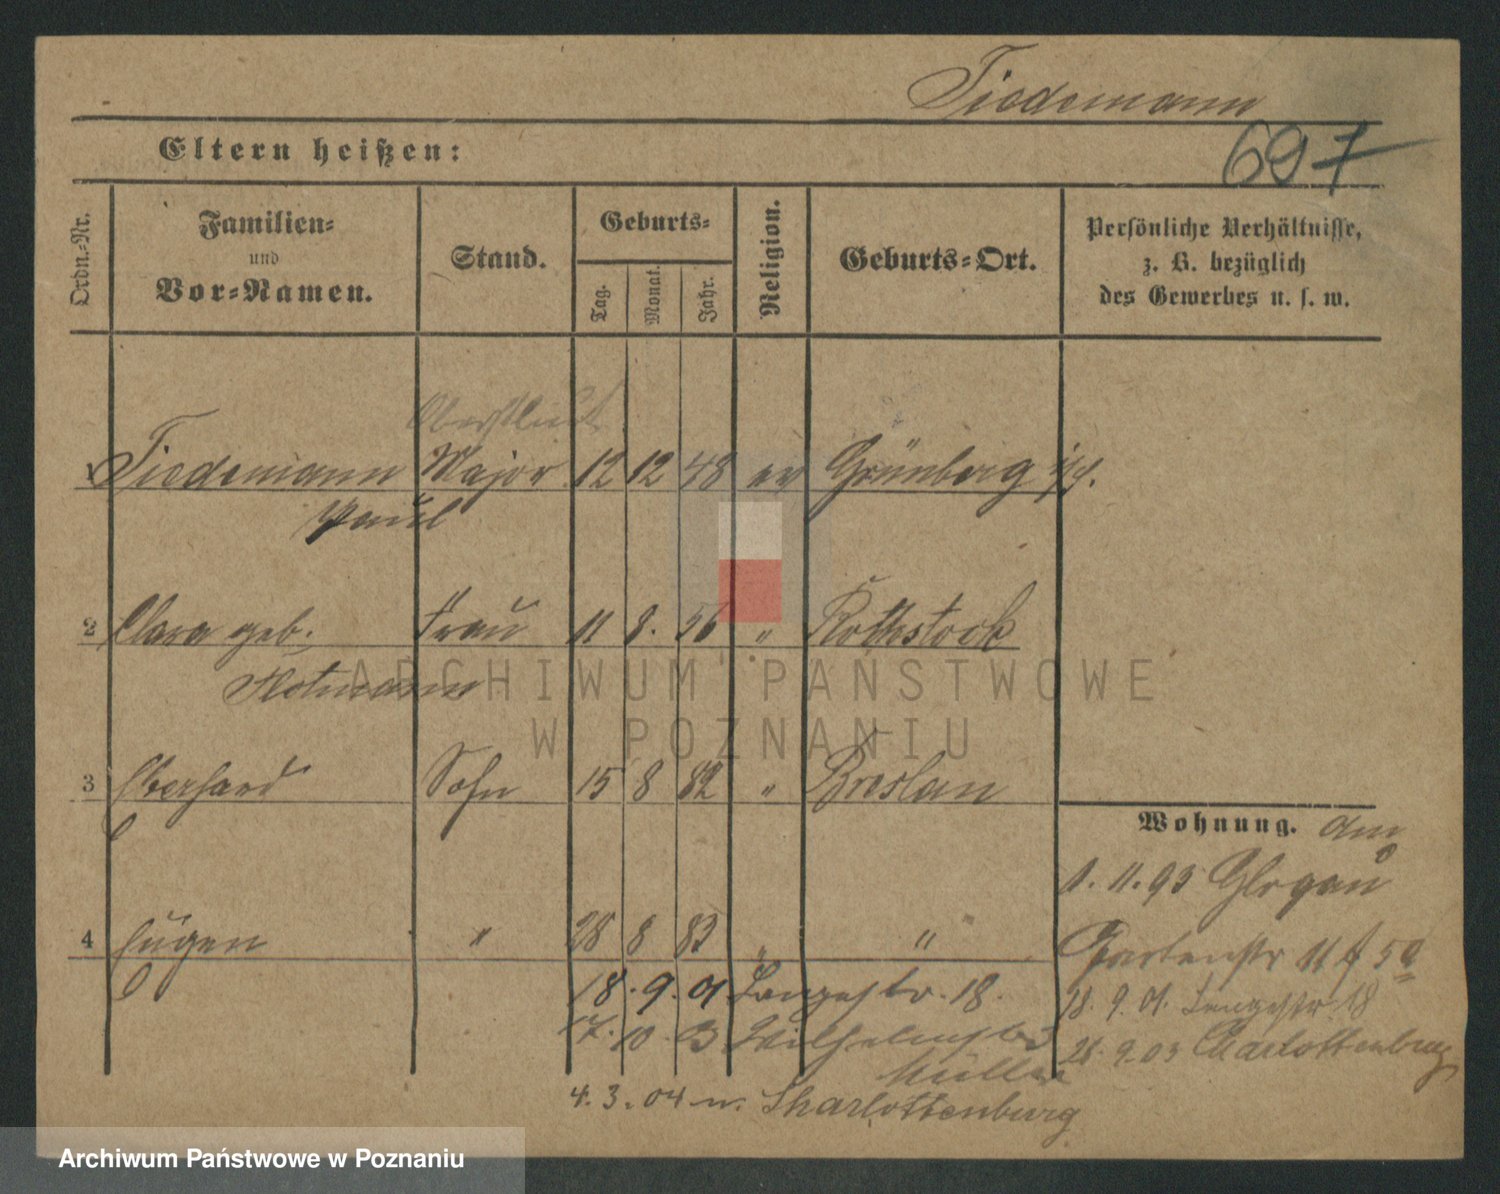 Tiedemann
697
Eltern heißen:
Ordn.-Nr.
Familien-
und
Vor-Namen.
Stand.
Geburts-
Tag.
Monat.
Jahr.
Religion.
Geburts-Ort.
Persönliche Verhältnisse,
z. B. bezüglich
des Gewerbes u. s. w.
Oberstlieut
Tiedemann Major 12 12 48 ev Grünberg
Paul
2 Clara geb. Frau 11 8. 56 " Rothstock
3 Eberhard Sohn 15 8 82 " Breslau
4 Eugen " 28 8 83 " "
Wohnung. am
1. 11. 93 Glogau
Gartenstr 11
18. 9. 01. Langestr. 18.
18. 9. 01. Langestr 18
17. 10. 03 Wilhelmstr 3
28. 9. 03 Charlottenburg
Müller
4. 3. 04 n. Charlottenburg
ARCHIWUM PAŃSTWOWE
W POZNANIU
Archiwum Państwowe w Poznaniu